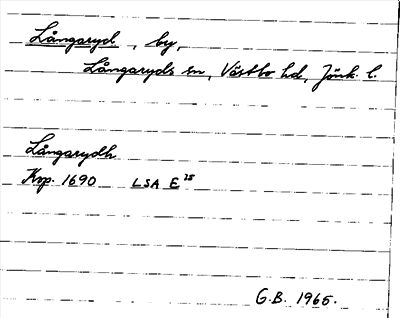 Långaryd, by,
Långaryds sn, Västbo hd, Jönk. l.
Långarydh
Krp. 1690 LSA E 15
G.B. 1965.